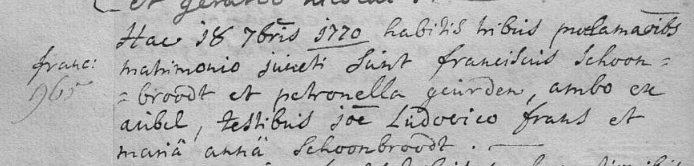 et gerardo nicolai
Hac 18 7bris 1770 habitis tribus proclamaõibs
franc: matrimonio juncti sunt franciscus schoon=
965 =broodt et petronella geurden, ambo ex
aubel, testibus joē Ludovico frans et
mariä annä Schoonbroodt. —